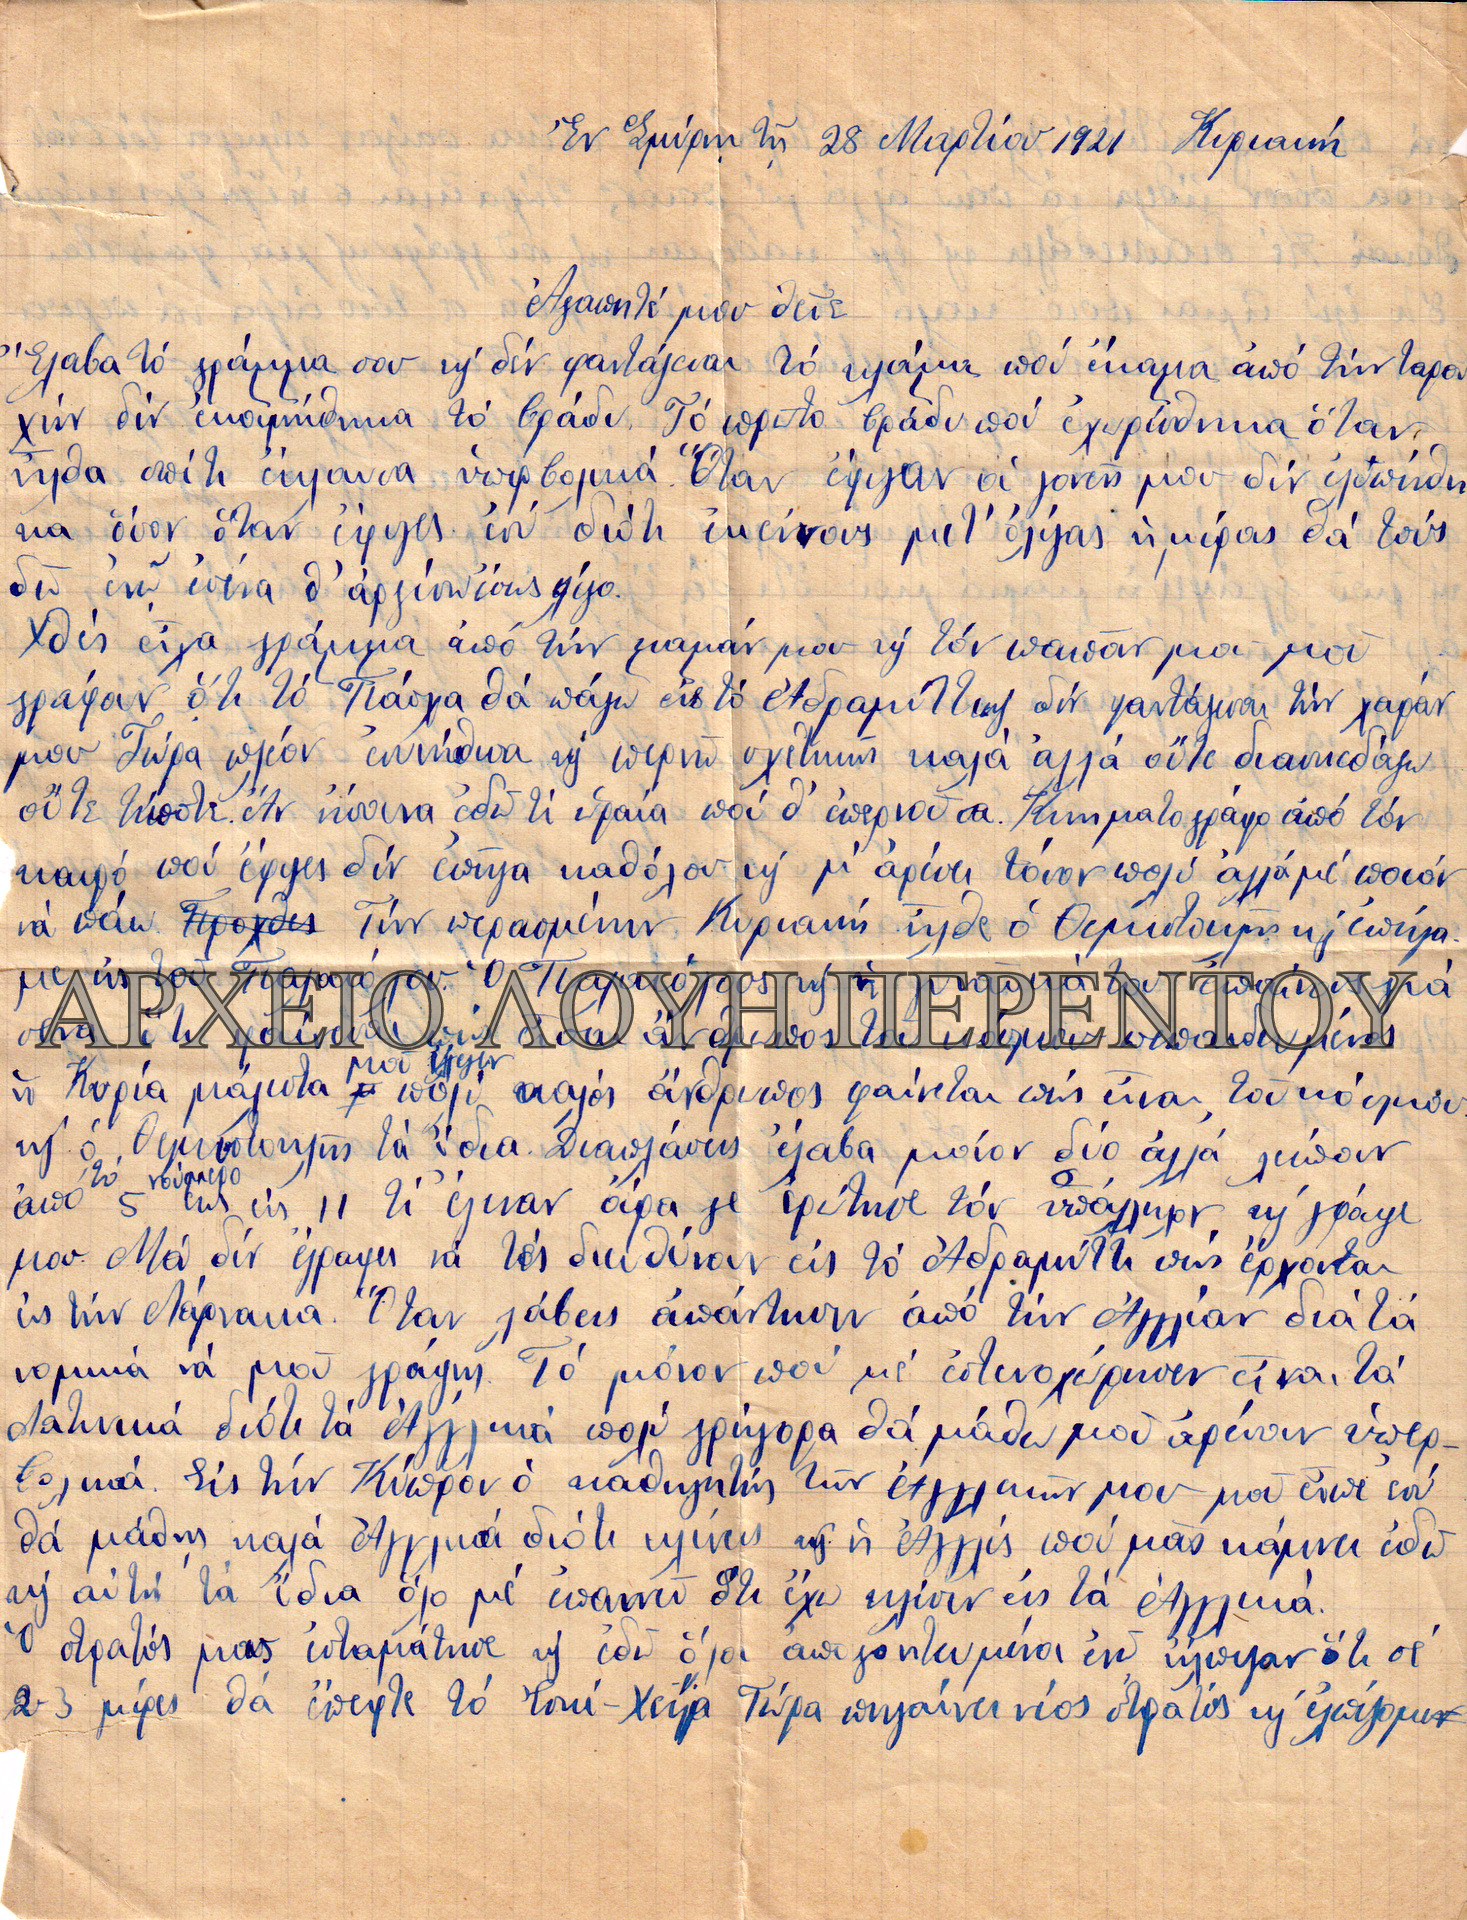 Ἐν Σμύρνῃ τῇ 28 Μαρτίου 1921 Κυριακή
Ἀγαπητέ μου θεῖε
Ἔλαβα τό γράμμα σου κ' δέν φαντάζεσαι τό κλάμα πού ἔκαμα ἀπό τήν ταρα
χήν δέν ἐκοιμήθηκα τό βράδυ. Τό πρῶτο βράδυ πού ἐχωρίσθηκα ὅταν
ἦλθα σπίτι ἔκλαυσα ὑπερβολικά. Ὅταν ἔφυγαν οἱ γονεῖς μου δέν ἐλυπήθη
κα ὅσον ὅταν ἔφυγες ἐσύ διότι ἐκείνους μετ' ὀλίγας ἡμέρας θά τούς
δῶ ἐνῶ ἐσένα θ' ἀργήσω
Χθές εἶχα γράμμα ἀπό τήν μαμάν μου κ' τόν παπᾶν μου μοῦ
γράφαν ὅτι τό Πάσχα θά πάγω εἰς τό Ἀδραμύττιον δέν φαντάζεσαι τήν χαράν
μου Τώρα πλέον ἐσυνήθισα κ' περνῶ σχετικῶς καλά ἀλλά οὔτε διασκεδάζω
οὔτε τίποτε. Ἄν ἤσουνα ἐδῶ τί ὡραία πού θ' ἐπερνοῦσα. Κινηματογράφο ἀπό τόν
καιρό πού ἔφυγες δέν ἐπῆγα καθόλου κ' μ' ἀρέσει τόσον πολύ ἀλλά μέ ποιόν
νά πάω. Προχθές Τήν περασμένην Κυριακήν ἦλθε ὁ Θεμιστοκλῆς κ' ἐπήγα-
με εἰς τοῦ Παλαιολόγου. Ὁ Παλαιολόγος κ' ἡ γυναῖκα του
ὅτι φαίνεται πώς εἶσαι ἄνθρωπος τοῦ κόσμου πεπαιδευμένος
ἡ Κυρία μάλιστα μοῦ ἔλεγεν πολύ καλός ἄνθρωπος φαίνεται πώς εἶναι τοῦ κόσμου
κ' ὁ Θεμιστοκλῆς τά ἴδια. Διαπλάσεις ἔλαβα μόνον δύο ἀλλά λείπουν
ἀπό τό 5 νούμερο ἕως εἰς 11 τί ἔγιναν ἄρα γε ἐρώτησε τόν ὑπάλληλον κ' γράψε
μου. Μά δέν ἔγραψες νά τές διευθύνουν εἰς τό Ἀδραμύττι πώς ἔρχονται
εἰς τήν Λάρνακα. Ὅταν λάβεις ἀπάντησιν ἀπό τήν Ἀγγλίαν διά τά
νομικά νά μοῦ γράψῃς. Τό μόνον πού μέ ἐστενοχώρησεν εἶναι τά
Λατινικά διότι τά Ἀγγλικά πολύ γρήγορα θά μάθω μοῦ ἀρέσουν ὑπερ-
βολικά. Εἰς τήν Κύπρον ὁ καθηγητής τῶν Ἀγγλικῶν μου μοῦ εἶπε ἐσύ
θά μάθῃς καλά Ἀγγλικά διότι κλίνεις κ' ἡ Ἀγγλίς πού μᾶς κάμνει ἐδῶ
κ' αὐτή τά ἴδια ὅλο μέ ἐπαινεῖ ὅτι ἔχω κλίσιν εἰς τά Ἀγγλικά.
Ὁ στρατός μας ἐσταμάτησε κ' ἐδῶ ὅλοι ἀπογοητευμένοι ἐνῶ ἤλπιζαν ὅτι σέ
2-3 μέρες θά ἔπεφτε τό Ἐσκί-Χεήρ Τώρα πηγαίνει νέος στρατός κ' ἐλπίζομεν
ΑΡΧΕΙΟ ΛΟΥΗ ΠΕΡΕΝΤΟΥ